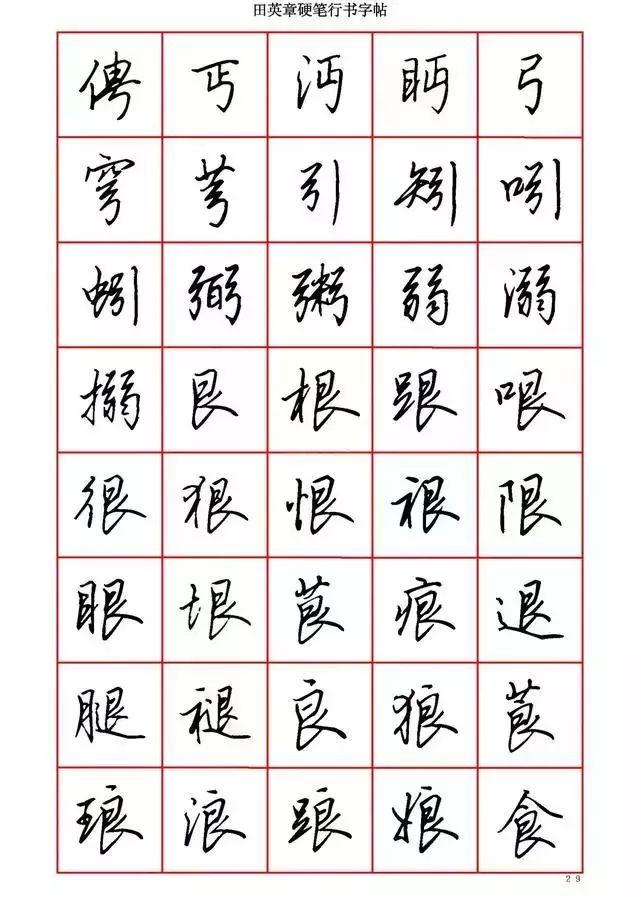 田英章硬笔行书字帖
俜丐沔眄弓
穹芎引矧吲
蚓弼粥弱溺
搦艮根跟哏
很狠恨裉限
眼垠茛痕退
腿褪良狼莨
琅浪踉娘食
29